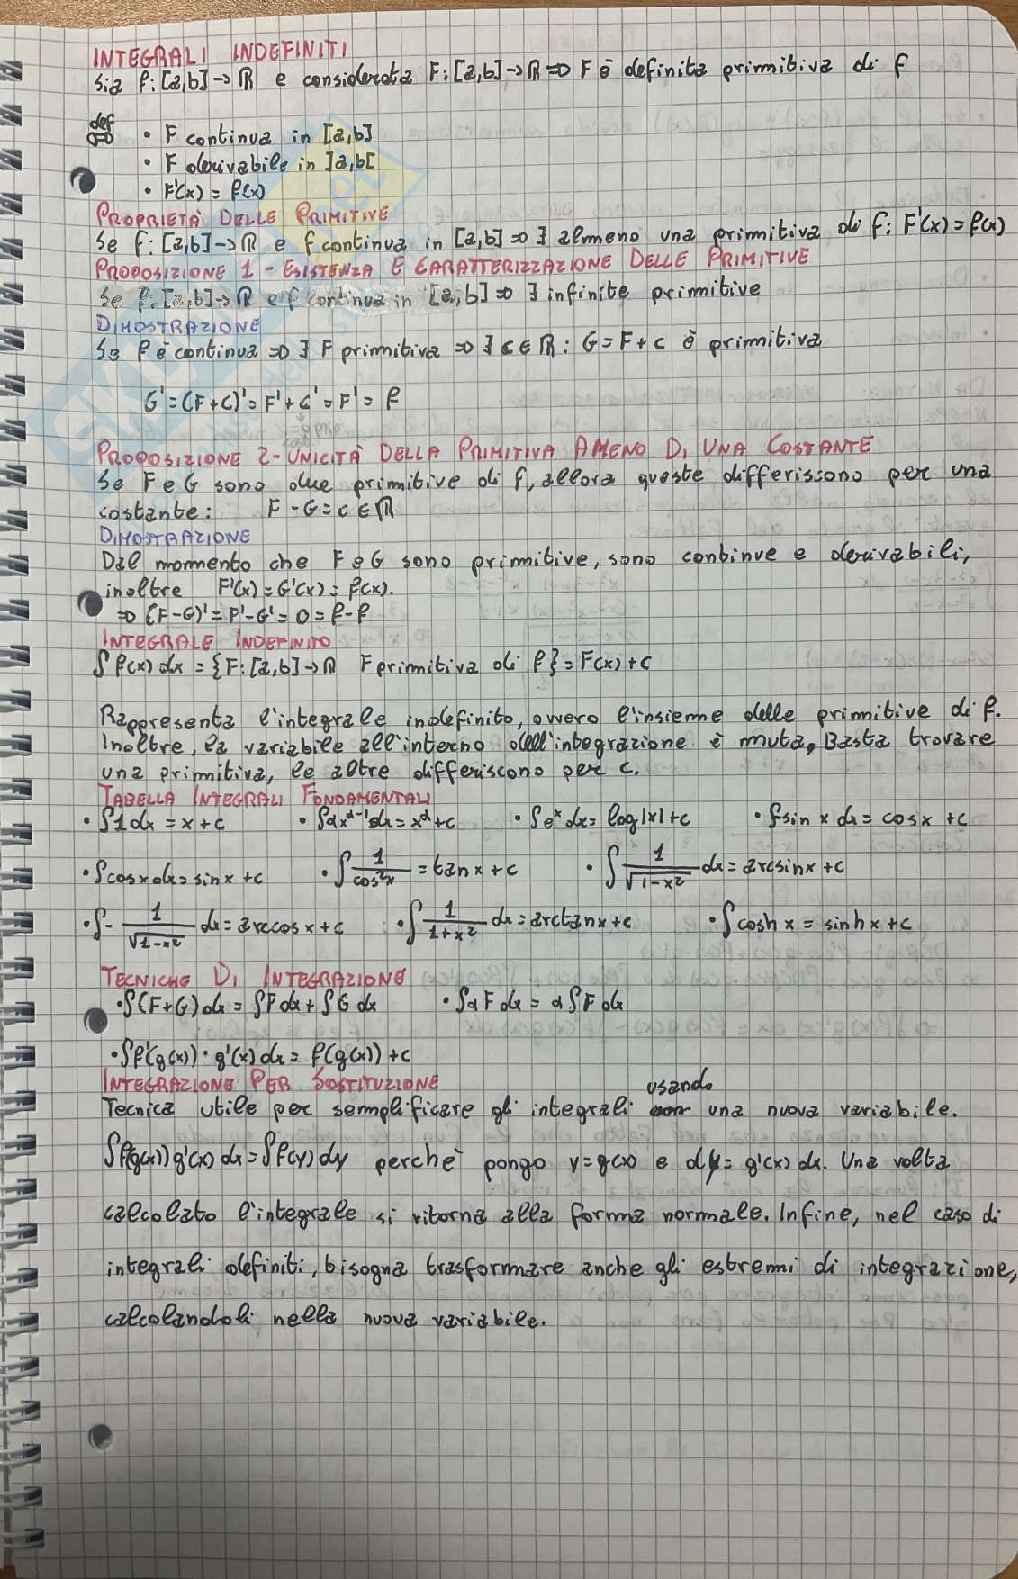 INTEGRALI INDEFINITI
Sia f: [a,b] → ℝ e considerata F: [a,b] → ℝ ⇒ F è definita primitiva di f
def
⇔ • F continua in [a,b]
• F derivabile in ]a,b[
• F'(x) = f(x)
PROPRIETÀ DELLE PRIMITIVE
Se f: [a,b] → ℝ e f continua in [a,b] ⇒ ∃ almeno una primitiva di f: F'(x) = f(x)
PROPOSIZIONE 1 - ESISTENZA E CARATTERIZZAZIONE DELLE PRIMITIVE
Se f: [a,b] → ℝ e f continua in [a,b] ⇒ ∃ infinite primitive
DIMOSTRAZIONE
Se f è continua ⇒ ∃ F primitiva ⇒ ∃ c ∈ ℝ : G = F + c è primitiva
G' = (F + C)' = F' + C' = F' = f
PROPOSIZIONE 2 - UNICITÀ DELLA PRIMITIVA A MENO DI UNA COSTANTE
Se F e G sono due primitive di f, allora queste differissono per una
costante: F - G = c ∈ ℝ
DIMOSTRAZIONE
Dal momento che F e G sono primitive, sono continue e derivabili,
inoltre F'(x) = G'(x) = f(x).
⇒ (F - G)' = F' - G' = 0 = f - f
INTEGRALE INDEFINITO
∫ f(x) dx = {F: [a,b] → ℝ F primitiva di f} = F(x) + c
Rappresenta l'integrale indefinito, ovvero l'insieme delle primitive di f.
Inoltre, la variabile all'interno dell'integrazione è muta, Basta trovare
una primitiva, le altre differiscono per c.
TABELLA INTEGRALI FONDAMENTALI
• ∫1 dx = x + c • ∫αx^(α-1) dx = x^α + c • ∫e^x dx = log|x| + c • ∫sin x dx = cosx + c
• ∫cosx dx = sinx + c • ∫ 1/cos²x = tanx + c • ∫ 1/√(1-x²) dx = arcsinx + c
• ∫ - 1/√(1-x²) dx = arccosx + c • ∫ 1/(1+x²) dx = arctanx + c • ∫cosh x = sinhx + c
TECNICHE DI INTEGRAZIONE
• ∫(F+G) dx = ∫F dx + ∫G dx • ∫αF dx = α∫F dx
• ∫f'(g(x)) · g'(x) dx = f(g(x)) + c
INTEGRAZIONE PER SOSTITUZIONE
Tecnica utile per semplificare gli integrali usando una nuova variabile.
∫f(g(x)) g'(x) dx = ∫f(y) dy perché pongo y = g(x) e dy = g'(x) dx. Una volta
calcolato l'integrale si ritorna alla forma normale. Infine, nel caso di
integrali definiti, bisogna trasformare anche gli estremi di integrazione,
calcolandoli nella nuova variabile.